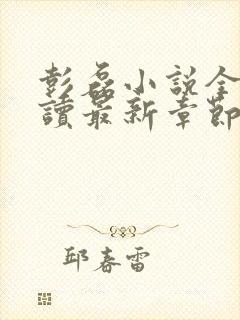 彭磊小說全
讀最新章節
邱春雷